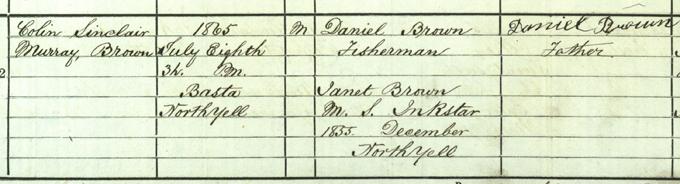 Colin Sinclair
Murray, Brown
2
1865
July Eighth
3h. P.M.
Basta
North Yell
M
Daniel Brown
Fisherman
Janet Brown
M. S. Inkstar
1855. December
North Yell
Daniel Brown
Father.